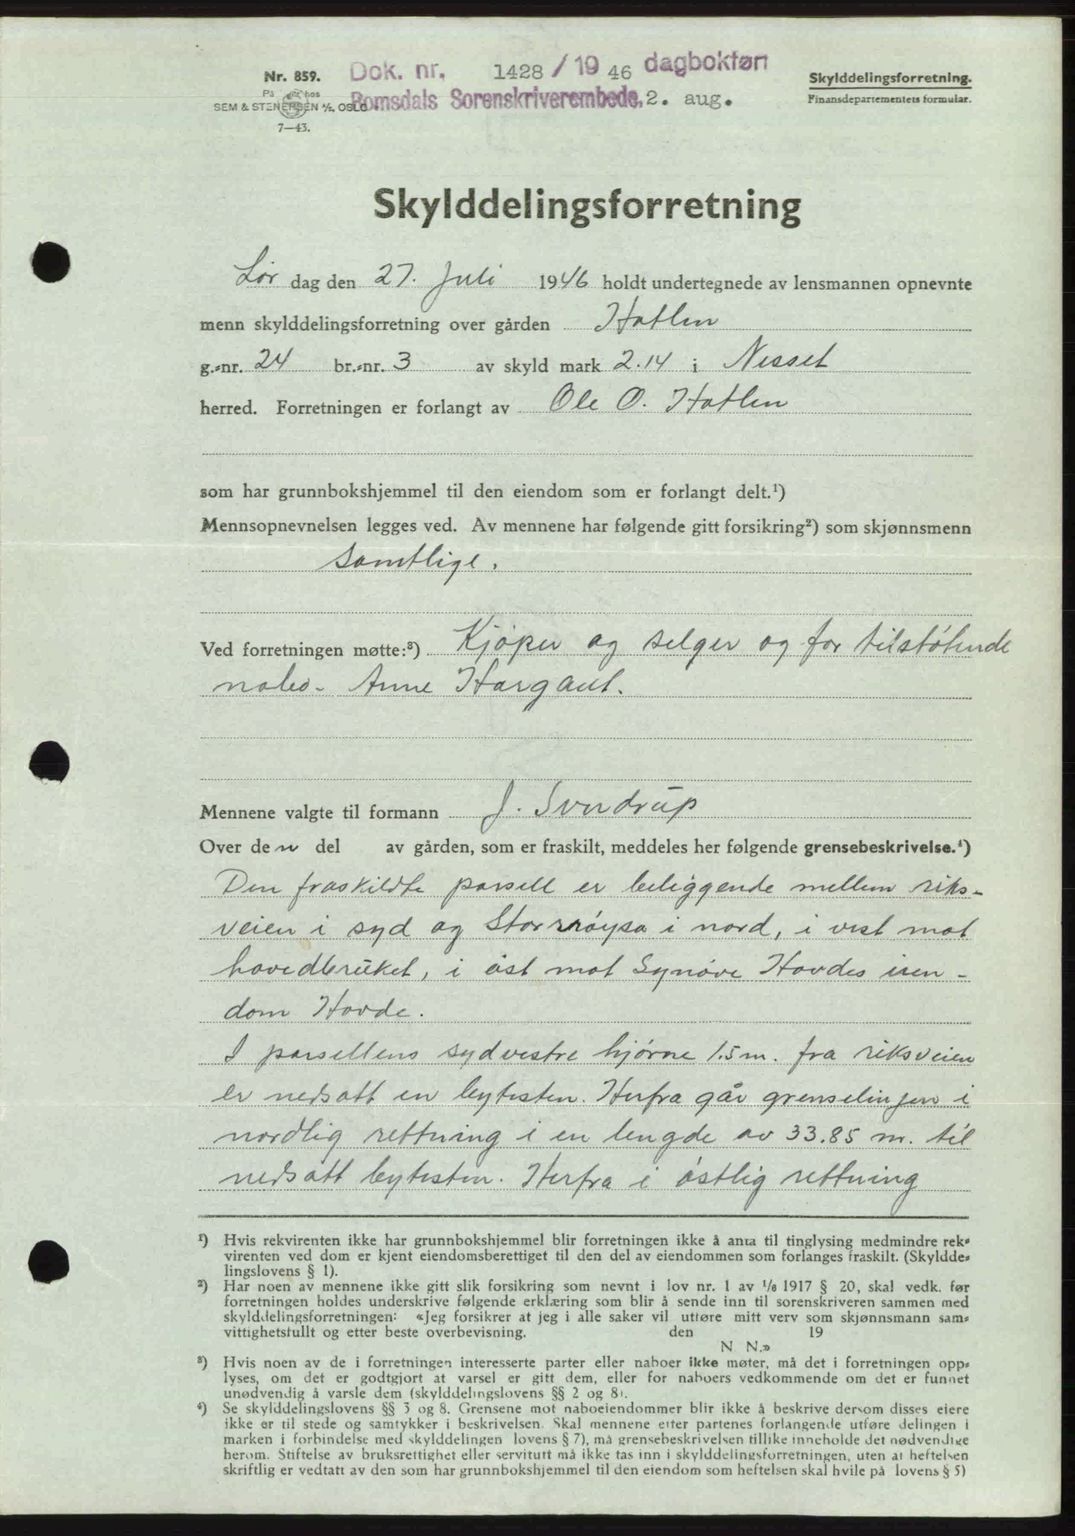 Nr. 859.
På hos
SEM & STENERSEN A/S. OSLO
7—43.
Dok. nr. 1428 / 19 46 dagbokført
Romsdals Sorenskriverembede, 2. aug.
Skylddelingsforretning.
Finansdepartementets formular.
Skylddelingsforretning
Lør dag den 27. Juli 1946 holdt undertegnede av lensmannen opnevnte
menn skylddelingsforretning over gården Hatlen
g.-nr. 24 br.-nr. 3 av skyld mark 2.14 i Nesset
herred. Forretningen er forlangt av Ole O. Hatlen
som har grunnbokshjemmel til den eiendom som er forlangt delt.¹)
Mennsopnevnelsen legges ved. Av mennene har følgende gitt forsikring²) som skjønnsmenn
samtlige.
Ved forretningen møtte:³) Kjøper og selger og for tilstøtende
nabo. Anne Hargaut.
Mennene valgte til formann J. Sverdrup
Over den del av gården, som er fraskilt, meddeles her følgende grensebeskrivelse.⁴)
Den fraskildte parsell er beliggende mellem riks-
veien i syd og Storrøysa i nord, i vest mot
hovedbruket, i øst mot Synøve Hovdes eien-
dom Hovde.
I parsellens sydvestre hjørne 1.5 m. fra riksveien
er nedsatt en bytesten. Herfra går grenselinjen i
nordlig rettning i en lengde av 33.85 m. til
nedsatt bytesten. Herfra i østlig rettning
¹) Hvis rekvirenten ikke har grunnbokshjemmel blir forretningen ikke å anta til tinglysing medmindre rek-
virenten ved dom er kjent eiendomsberettiget til den del av eiendommen som forlanges fraskilt. (Skyldde-
lingslovens § 1).
²) Har noen av mennene ikke gitt slik forsikring som nevnt i lov nr. 1 av 1/6 1917 § 20, skal vedk. før
forretningen holdes underskrive følgende erklæring som blir å sende inn til sorenskriveren sammen med
skylddelingsforretningen: «Jeg forsikrer at jeg i alle saker vil utføre mitt verv som skjønnsmann sam-
vittighetsfullt og etter beste overbevisning. den 19
N N.»
³) Hvis noen av de i forretningen interesserte parter eller naboer ikke møter, må det i forretningen opp-
lyses, om det er godtgjort at varsel er gitt dem, eller for naboers vedkommende om det er funnet
unødvendig å varsle dem (skylddelingslovens §§ 2 og 8).
⁴) Se skylddelingslovens §§ 3 og 8. Grensene mot naboeiendommer blir ikke å beskrive dersom disses eiere
ikke er til stede og samtykker i beskrivelsen. Skal mennene etter partenes forlangende utføre delingen i
marken i forbindelse med skylddelingen lovens § 7), må grensebeskrivelsen tillike inneholde det nødvendige
herom. Stiftelse av bruksrettighet eller servitutt må ikke tas inn i skylddelingsforretningen, uten at heftelsen
skriftlig er vedtatt av den som har grunnbokshjemmel til den eiendom som heftelsen skal hvile på lovens § 5)